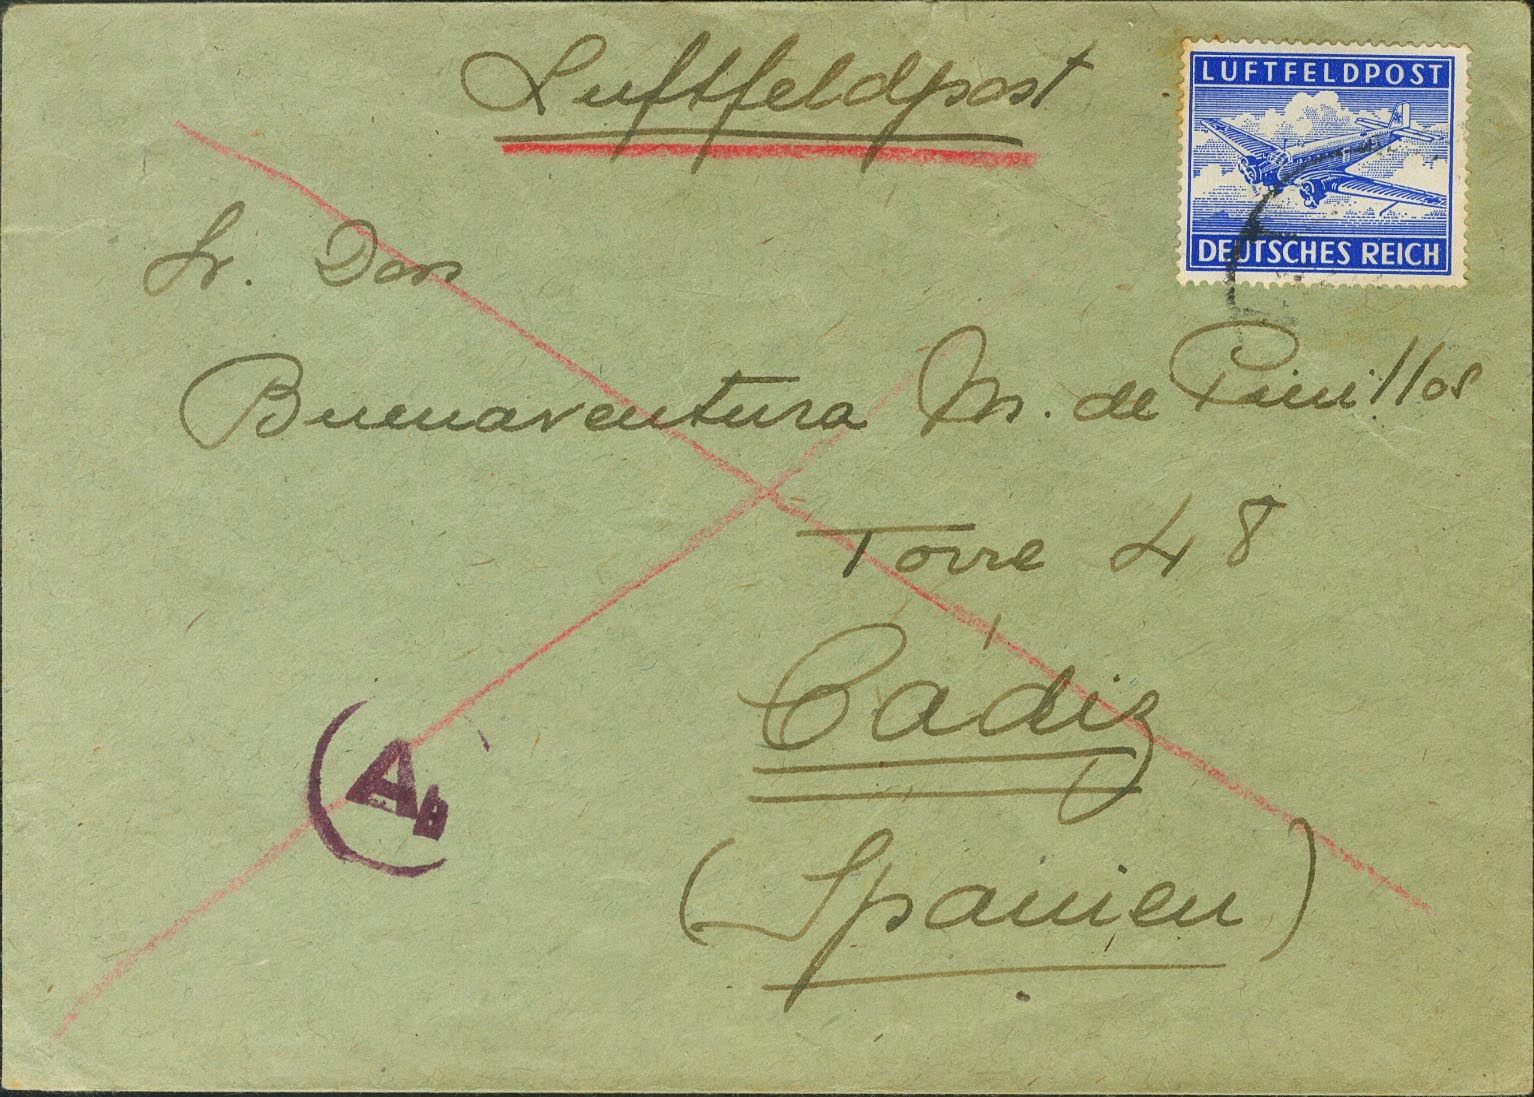 Luftfeldpost
LUFTFELDPOST
DEUTSCHES REICH
Sr. Don
Buenaventura M. de Pinillos
Torre 48
Cádiz
(Spanien)
Ab